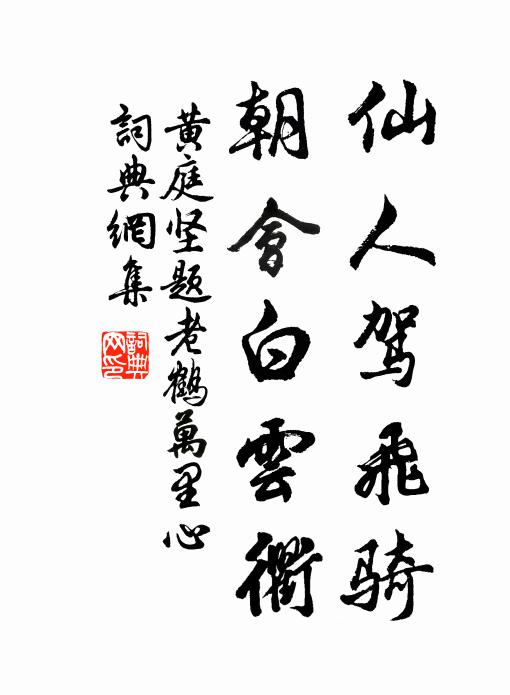 仙人駕飛騎
朝會白雲衢
黃庭坚題老鶴萬里心
詞典網集
詞典
网印